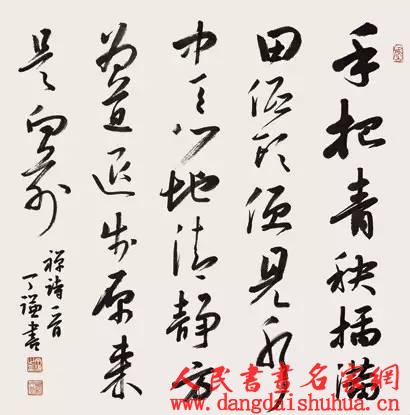 手把青秧插滿
田低頭便見水
中天心地清靜方
為道退步原来
是向前
禪詩一首
丁謙書
人民書畫名家網
www.dangdaishuhua.cn